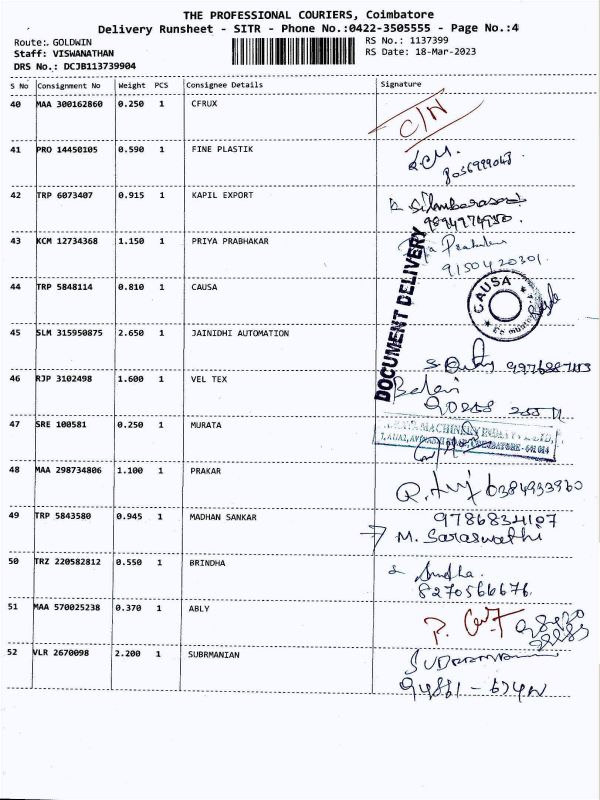 THE PROFESSIONAL COURIERS, Coimbatore
Delivery Runsheet - SITR - Phone No.:0422-3505555 - Page No.:4
Route: GOLDWIN
Staff: VISWANATHAN
DRS No.: DCJB113739904
RS No.: 1137399
RS Date: 18-Mar-2023
S No Consignment No Weight PCS Consignee Details Signature
40 MAA 300162860 0.250 1 CFRUX
C/N
41 PRO 14450105 0.590 1 FINE PLASTIK
42 TRP 6073407 0.915 1 KAPIL EXPORT
43 KCM 12734368 1.150 1 PRIYA PRABHAKAR
9150420301
44 TRP 5848114 0.810 1 CAUSA
CAUSA
DOCUMENT DELIVERY
45 SLM 315950875 2.650 1 JAINIDHI AUTOMATION
46 RJP 3102498 1.600 1 VEL TEX
47 SRE 100581 0.250 1 MURATA
48 MAA 298734806 1.100 1 PRAKAR
49 TRP 5843580 0.945 1 MADHAN SANKAR
M. Saraswathi
50 TRZ 220582812 0.550 1 BRINDHA
8270566676
51 MAA 570025238 0.370 1 ABLY
52 VLR 2670098 2.200 1 SUBRMANIAN